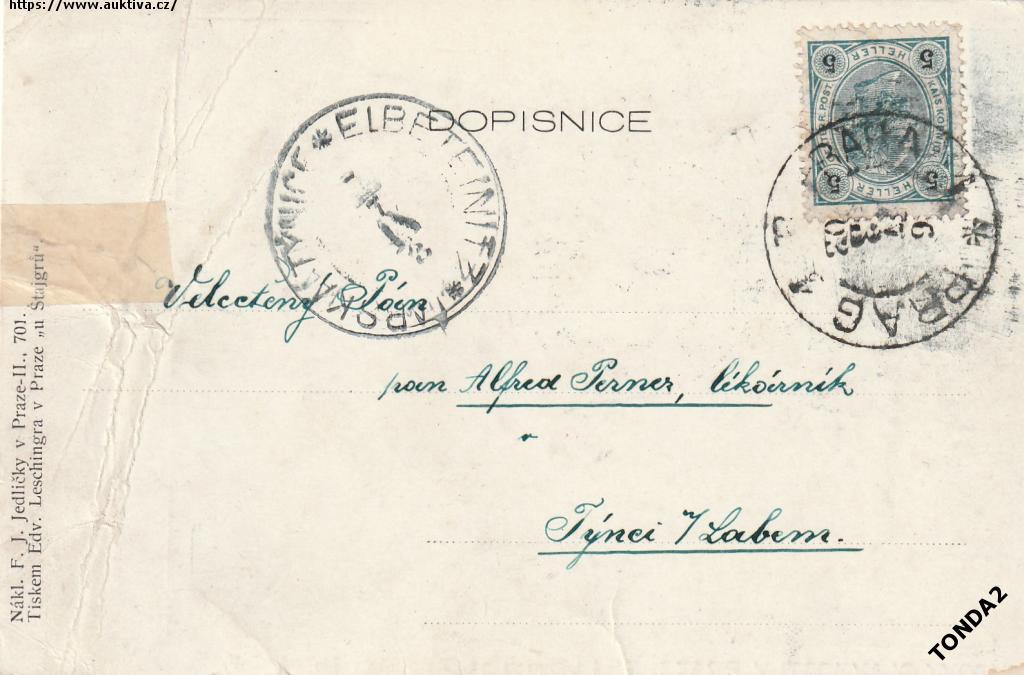 https://www.auktiva.cz/
DOPISNICE
5 HELLER 5
KAIS KÖNIG
5 HELLER 5
PRAG
Velectěný Pán
pan Alfred Perner, lékárník
Týnci n/Labem.
Nákl. F. J. Jedličky v Praze-II., 701.
Tiskem Edv. Leschingra v Praze „u Štajgrů“.
TONDA2